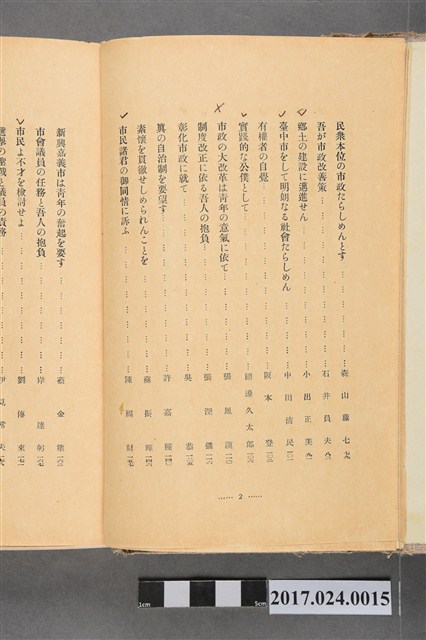 民衆本位の市政たらしめんとす……森山藤七
吾が市政改善策……石井貞夫
鄕土の建設に邁進せん……小出正美
臺中市をして明朗なる社會たらしめん……中田清民
有權者の自覺……阪本登
實踐的な公僕として……邊久太郎
市政の大改革は青年の意氣に依て……張風謨
制度改正に依る吾人の抱負……張深鑐
彰化市政に就て……吳恭
眞の自治制を要望す……許嘉種
素懷を貫徹せしめられんことを……蘇振輝
市民諸君の御同情に訴ふ……陳楊財
新興嘉義市は青年の奮起を要す……蘇金
市會議員の任務と吾人の抱負……岸達躬
市民よ不才を檢討せよ……劉傳來
…… 2 ……
1cm
5cm
2017.024.0015